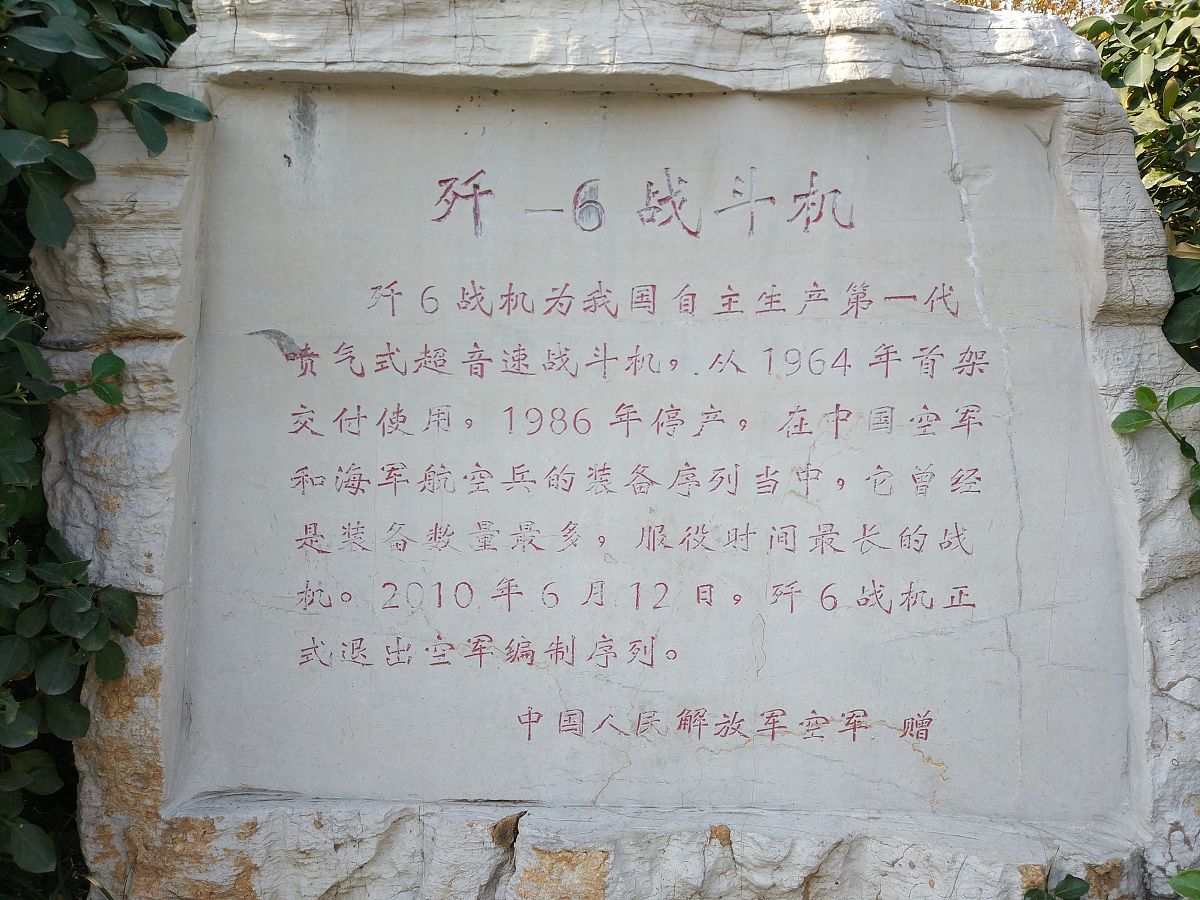 歼－6战斗机
歼6战机为我国自主生产第一代
喷气式超音速战斗机，从1964年首架
交付使用，1986年停产，在中国空军
和海军航空兵的装备序列当中，它曾经
是装备数量最多，服役时间最长的战
机。2010年6月12日，歼6战机正
式退出空军编制序列。
中国人民解放军空军 赠